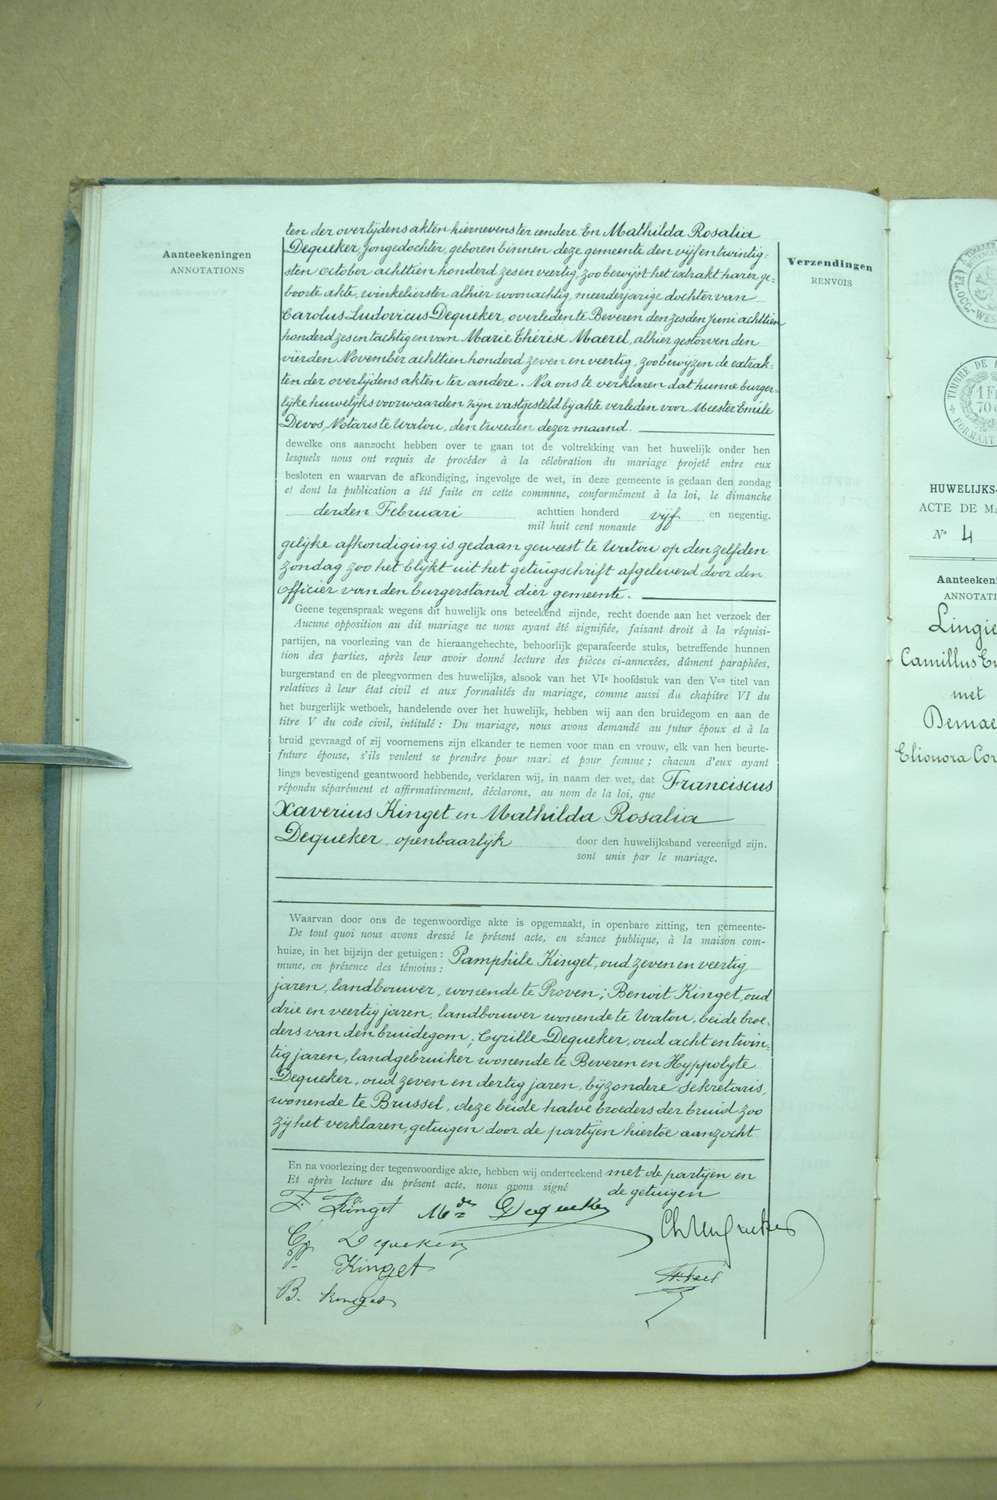 Aanteekeningen
ANNOTATIONS
Verzendingen
RENVOIS
ten der overlijdens akten hiernevens ter eendere. En Mathilda Rosalia
Dequeker, Jongedochter, geboren binnen deze gemeente den vijfentwintig-
sten october achttien honderd zes en veertig, zoo bewijst het extrakt harer ge-
boorte akte, winkelierster alhier woonachtig, meerderjarige dochter van
Carolus Ludovicus Dequeker, overleden te Beveren den zesden Juni achttien
honderd zes en tachtig en van Marie Thérèse Maerel, alhier gestorven den
vierden November achttien honderd zeven en veertig, zoo bewijzen de extrak-
ten der overlijdens akten ter andere. Na ons te verklaren dat hunne burger-
lijke huwelijks voorwaarden zijn vastgesteld bij akte verleden voor Meester Emile
Devos, Notaris te Watou, den tweeden dezer maand.
dewelke ons aanzocht hebben over te gaan tot de voltrekking van het huwelijk onder hen
lesquels nous ont requis de procéder à la célébration du mariage projeté entre eux
besloten en waarvan de afkondiging, ingevolge de wet, in deze gemeente is gedaan den zondag
et dont la publication a été faite en cette commune, conformément à la loi, le dimanche
derden Februari achttien honderd vijf en negentig.
mil huit cent nonante
gelijke afkondiging is gedaan geweest te Watou op den zelfden
zondag zoo het blijkt uit het getuigschrift afgeleverd door den
officier van den burgerstand dier gemeente.
Geene tegenspraak wegens dit huwelijk ons beteekend zijnde, recht doende aan het verzoek der
Aucune opposition au dit mariage ne nous ayant été signifiée, faisant droit à la réquisi-
partijen, na voorlezing van de hieraangehechte, behoorlijk geparafeerde stuks, betreffende hunnen
tion des parties, après leur avoir donné lecture des pièces ci-annexées, dûment paraphées,
burgerstand en de pleegvormen des huwelijks, alsook van het VIe hoofdstuk van den Ven titel van
relatives à leur état civil et aux formalités du mariage, comme aussi du chapitre VI du
het burgerlijk wetboek, handelende over het huwelijk, hebben wij aan den bruidegom en aan de
titre V du code civil, intitulé : Du mariage, nous avons demandé au futur époux et à la
bruid gevraagd of zij voornemens zijn elkander te nemen voor man en vrouw, elk van hen beurte-
future épouse, s'ils veulent se prendre pour mari et pour femme ; chacun d'eux ayant
lings bevestigend geantwoord hebbende, verklaren wij, in naam der wet, dat Franciscus
répondu séparément et affirmativement, déclarons, au nom de la loi, que
Xaverius Kinget en Mathilda Rosalia
Dequeker openbaarlijk door den huwelijksband vereenigd zijn.
sont unis par le mariage.
Waarvan door ons de tegenwoordige akte is opgemaakt, in openbare zitting, ten gemeente-
De tout quoi nous avons dressé le présent acte, en séance publique, à la maison com-
huize, in het bijzijn der getuigen : Pamphile Kinget, oud zeven en veertig
mune, en présence des témoins :
jaren, landbouwer, wonende te Proven; Benoit Kinget, oud
drie en veertig jaren, landbouwer wonende te Watou, beide broe-
ders van den bruidegom; Cyrille Dequeker, oud acht en twin-
tig jaren, landgebruiker wonende te Beveren en Hyppolyte
Dequeker, oud zeven en dertig jaren, bijzondere sekretaris,
wonende te Brussel, deze beide halve broeders der bruid zoo
zij het verklaren, getuigen door de partijen hiertoe aanzocht
En na voorlezing der tegenwoordige akte, hebben wij onderteekend met de partijen en
Et après lecture du présent acte, nous avons signé de getuigen
F. Kinget Mde Dequeker
Cy Dequeker
P. Kinget
B. Kinget
HUWELIJKS-
ACTE DE MA
No 4
Aanteeken
ANNOTATI
Lingie
Camillus
met
Demae
Elionora Cor
TIMBRE DE
1 F